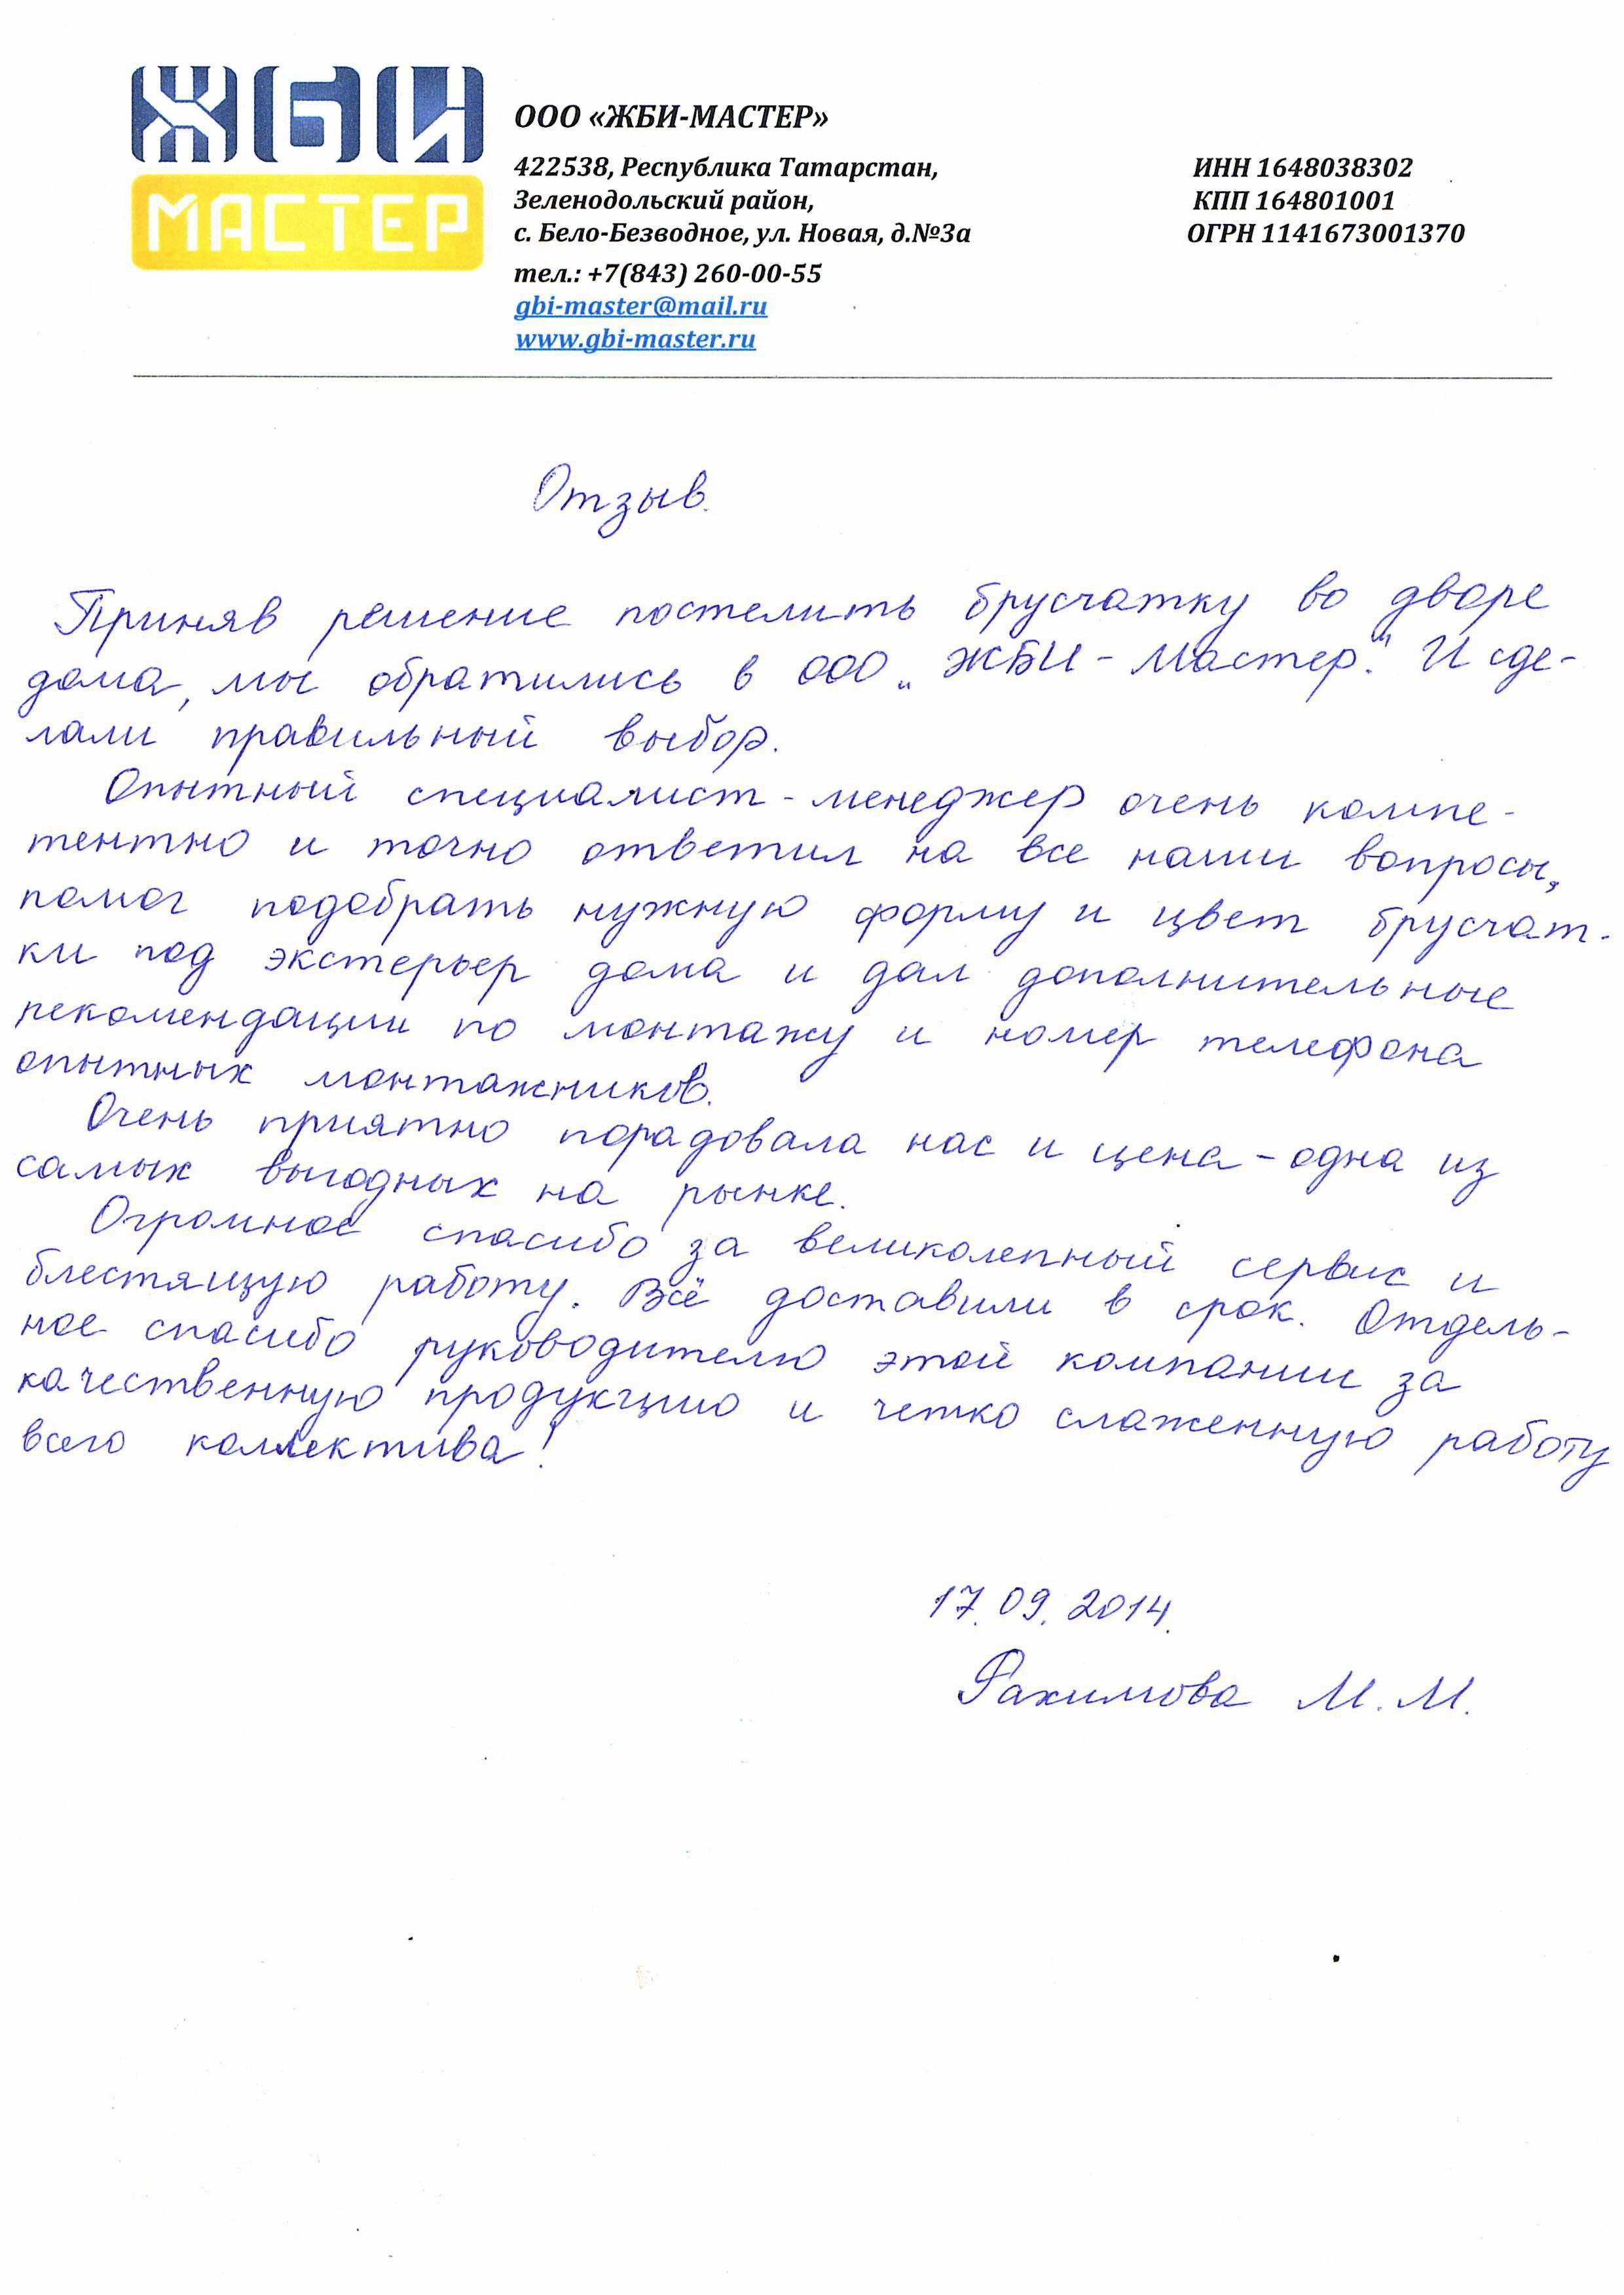 ЖБИ
МАСТЕР
ООО «ЖБИ-МАСТЕР»
422538, Республика Татарстан,
Зеленодольский район,
с. Бело-Безводное, ул. Новая, д.№3а
тел.: +7(843) 260-00-55
gbi-master@mail.ru
www.gbi-master.ru
ИНН 1648038302
КПП 164801001
ОГРН 1141673001370
Отзыв.
Приняв решение постелить брусчатку во дворе
дома, мы обратились в ООО „ЖБИ - Мастер". И сде-
лали правильный выбор.
Опытный специалист - менеджер очень компе-
тентно и точно ответил на все наши вопросы,
помог подобрать нужную форму и цвет брусчат-
ки под экстерьер дома и дал дополнительные
рекомендации по монтажу и номер телефона
опытных монтажников.
Очень приятно порадовала нас и цена - одна из
самых выгодных на рынке.
Огромное спасибо за великолепный сервис и
блестящую работу. Всё доставили в срок. Отдель-
ное спасибо руководителю этой компании за
качественную продукцию и четко слаженную работу
всего коллектива!
17.09.2014.
Рахимова М.М.